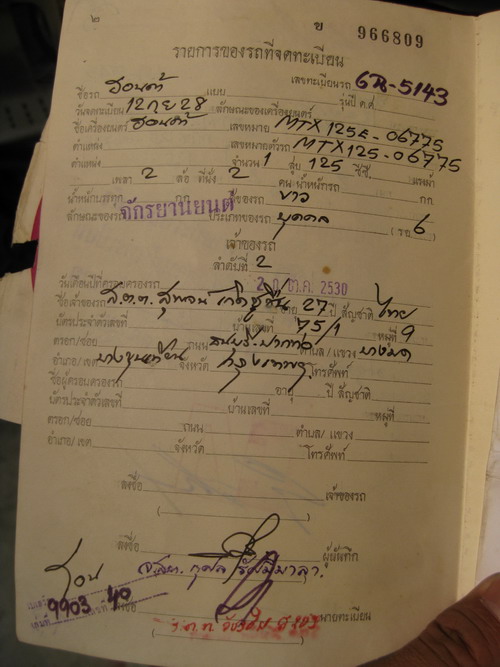 ๒ ข 966809
รายการของรถที่จดทะเบียน
ชื่อรถ ฮอนด้า แบบ เลขทะเบียนรถ 6น-5143
วันจดทะเบียน 12 กย 28 ลักษณะของเครื่องยนต์ รุ่นปี ค.ศ.
ชื่อเครื่องยนต์ ฮอนด้า เลขหมาย MTX 125E-06775
ตำแหน่ง เลขหมายตัวรถ MTX 125-06775
ตำแหน่ง จำนวน 1 สูบ 125 ซี.ซี. แรงม้า
เพลา 2 ล้อ ที่นั่ง 2 คน น้ำหนักรถ กก.
น้ำหนักบรรทุก กก. สีของรถ ขาว
ลักษณะของรถ จักรยานยนต์ ประเภทของรถ บุคคล (รย. 6
เจ้าของรถ
ลำดับที่ 2
วันเดือนปีที่ครอบครองรถ 2 0 ต.ค. 2530
ชื่อเจ้าของรถ ส.ต.ต. อายุ 27 ปี สัญชาติ ไทย
บัตรประจำตัวเลขที่ บ้านเลขที่ 75/1 หมู่ที่ 9
ตรอก/ซอย ถนน ธนบุรี-ปากท่อ ตำบล/แขวง บางมด
อำเภอ/เขต บางขุนเทียน จังหวัด กรุงเทพฯ โทรศัพท์
ชื่อผู้ครอบครองรถ อายุ ปี สัญชาติ
บัตรประจำตัวเลขที่ บ้านเลขที่ หมู่ที่
ตรอก/ซอย ถนน ตำบล/แขวง
อำเภอ/เขต จังหวัด โทรศัพท์
ลงชื่อ เจ้าของรถ
( )
ลงชื่อ ผู้บันทึก
จ.ส.ต.
9903 40 ลงชื่อ นายทะเบียน